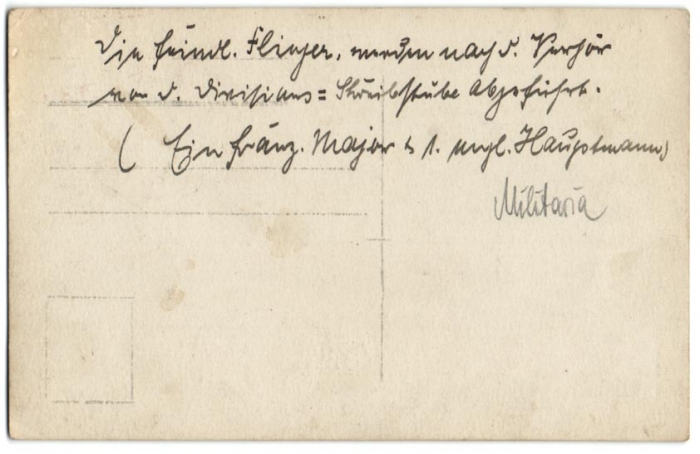 Die feindl. Flieger, werden nach d. Verhör
von d. Divisions= Schreibstube abgeführt.
( Ein franz. Major & 1. engl. Hauptmann)
Militaria